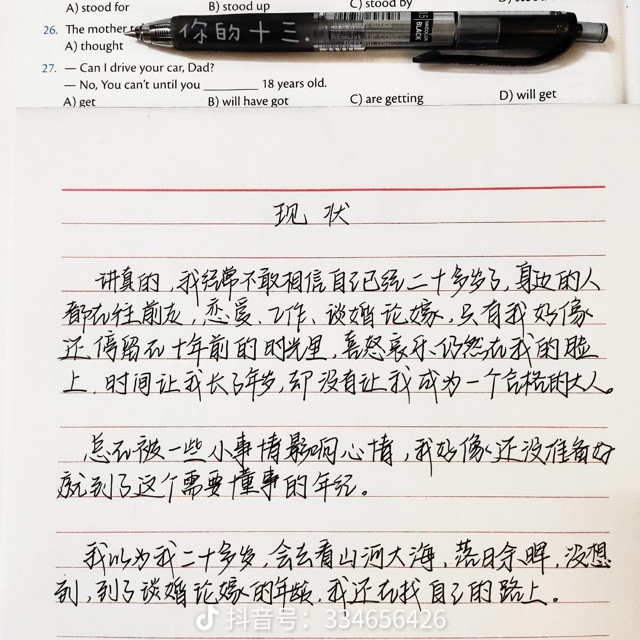 A) stood for
B) stood up
C) stood by
26. The mother
A) thought
你的十三.
BLACK
27. — Can I drive your car, Dad?
— No, You can't until you ________ 18 years old.
A) get
B) will have got
C) are getting
D) will get
现状
讲真的,我经常不敢相信自己已经二十多岁了,身边的人
都在往前走,恋爱、工作、谈婚论嫁,只有我好像
还停留在十年前的时光里,喜怒哀乐仍然在我的脸
上,时间让我长了年岁,却没有让我成为一个合格的大人。
总在被一些小事情影响心情,我好像还没准备好
就到了这个需要懂事的年纪。
我以为我二十多岁,会去看山河大海,落日余晖,没想
到,到了谈婚论嫁的年龄,我还在找自己的路上。
抖音号:334656426